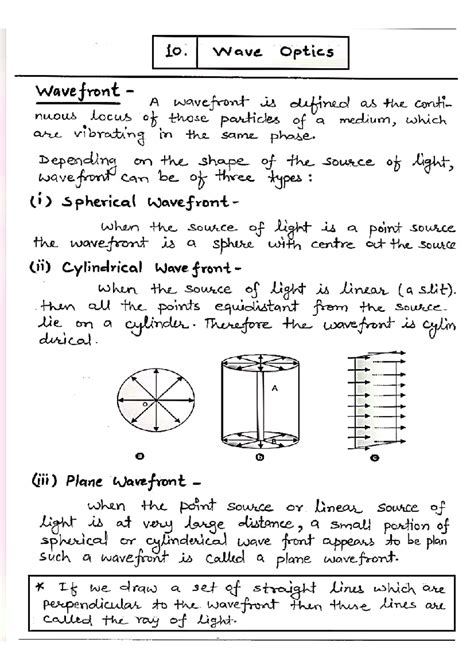 10. Wave Optics
Wavefront -
A wavefront is defined as the conti-
nuous locus of those particles of a medium, which
are vibrating in the same phase.
Depending on the shape of the source of light,
wavefront can be of three types :
(i) Spherical Wavefront -
When the source of light is a point source
the wavefront is a sphere with centre at the source
(ii) Cylindrical Wavefront -
When the source of light is linear (a slit).
then all the points equidistant from the source
lie on a cylinder. Therefore the wavefront is cylin
dirical.
O
A
B
a
b
c
(iii) Plane Wavefront -
When the point source or linear source of
light is at very large distance, a small portion of
spherical or cylinderical wave front appears to be plan
such a wavefront is called a plane wavefront.
* If we draw a set of straight lines which are
perpendicular to the wavefront then these lines are
called the ray of light.